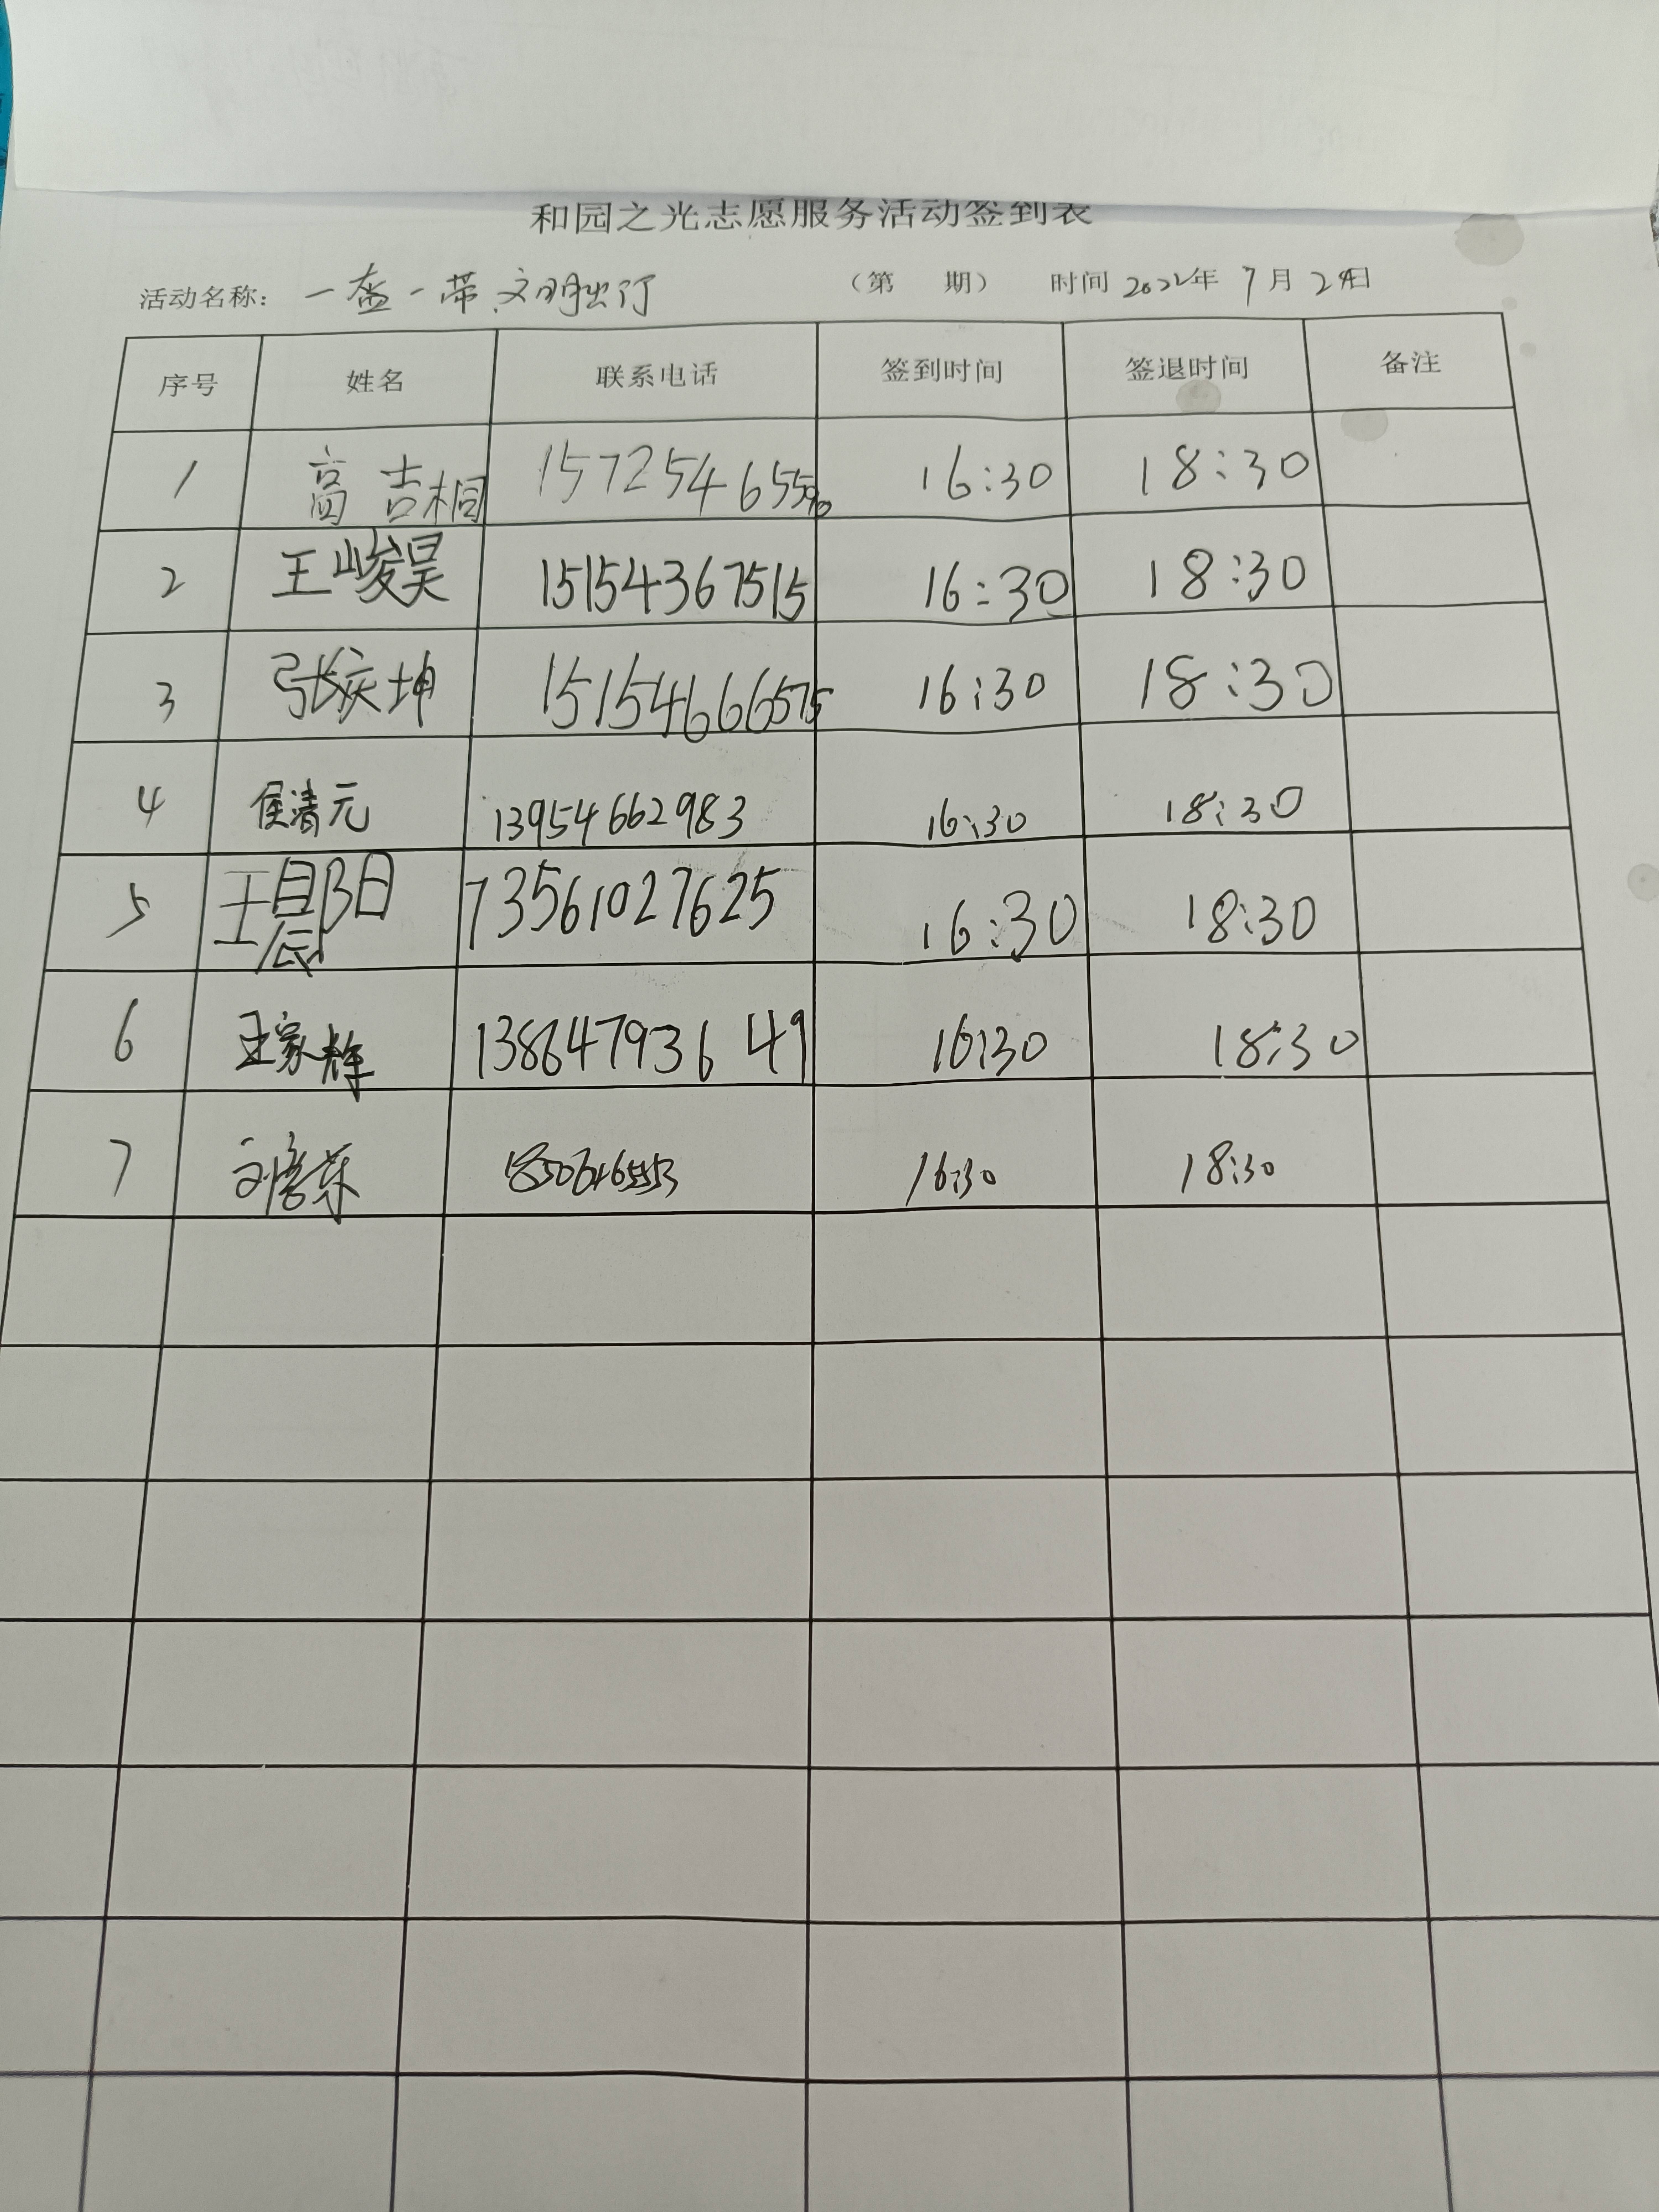 和园之光志愿服务活动签到表
活动名称: 一盔一带,文明出行 (第 期) 时间 2022年 7月 24日
序号 姓名 联系电话 签到时间 签退时间 备注
1 高吉桐 16:30 18:30
2 王峻昊 15154367515 16:30 18:30
3 张庆坤 15154666575 16:30 18:30
4 侯清元 13954662983 16:30 18:30
5 王晨阳 13561027625 16:30 18:30
6 王家辉 13864793649 16:30 18:30
7 16:30 18:30